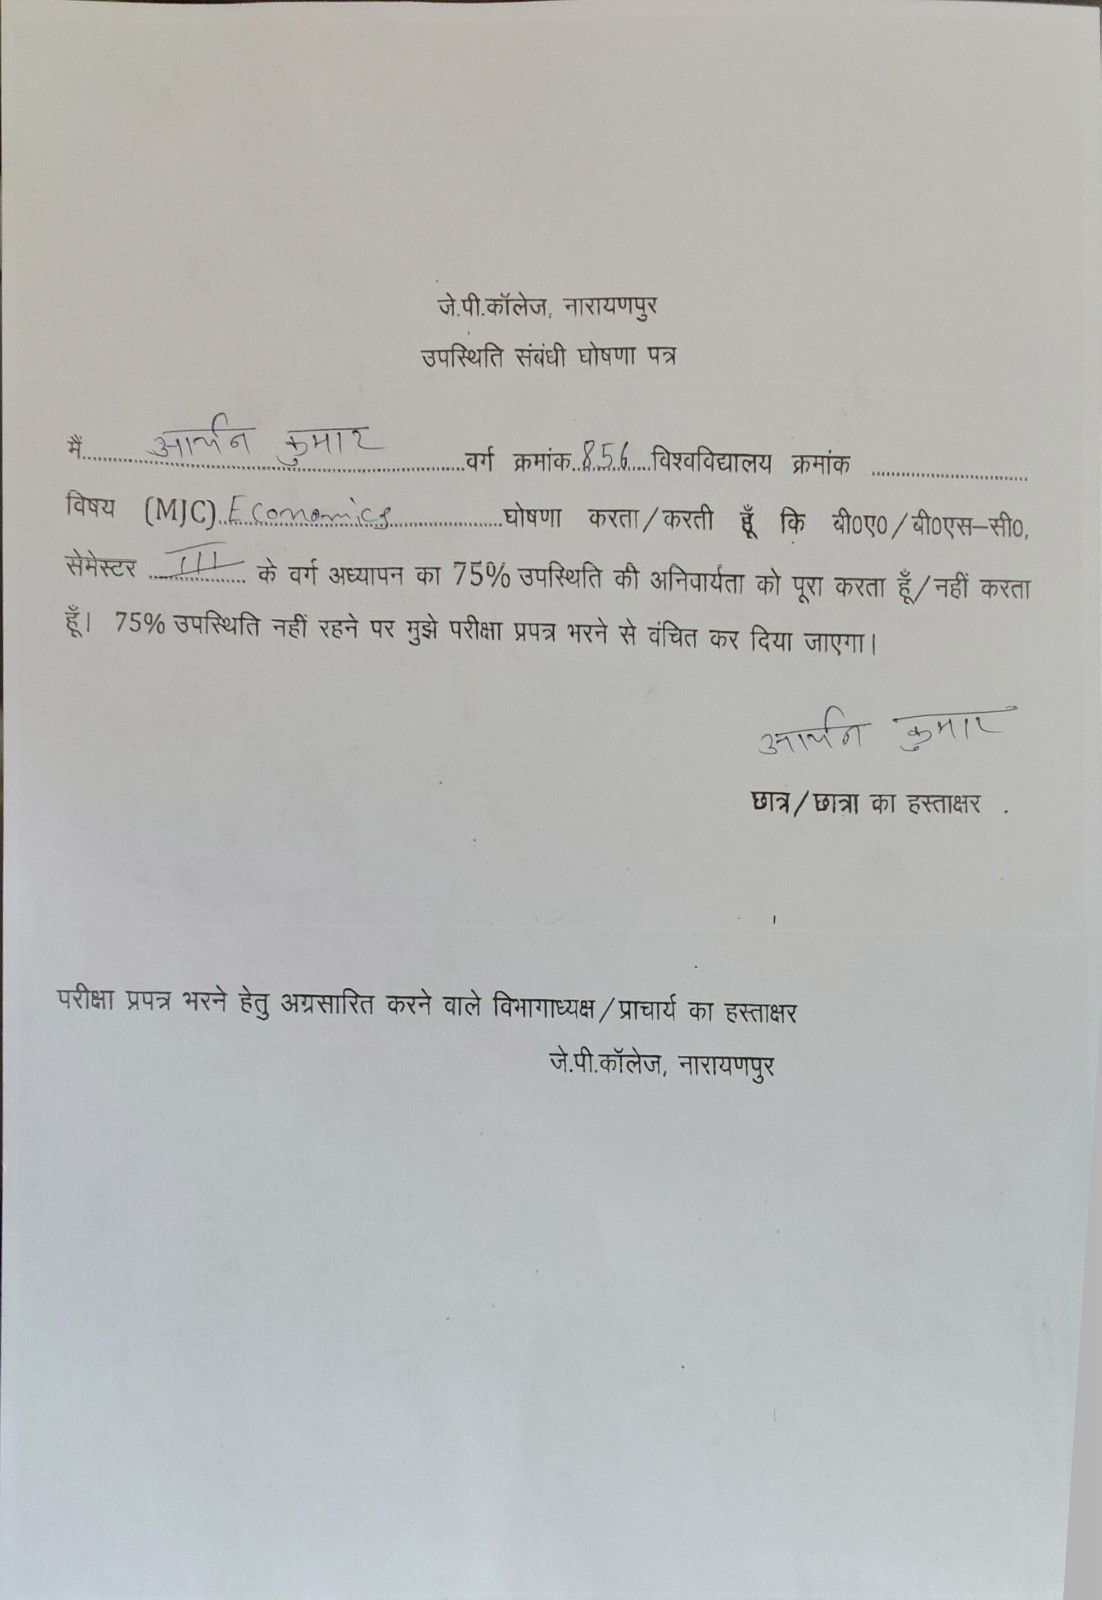 जे.पी.कॉलेज, नारायणपुर
उपस्थिति संबंधी घोषणा पत्र
मैं......आर्यन कुमार......वर्ग क्रमांक..856...विश्वविद्यालय क्रमांक ..............................
विषय (MJC)..Economics..................घोषणा करता/करती हूँ कि बी0ए0/बी0एस-सी0,
सेमेस्टर ....III.... के वर्ग अध्यापन का 75% उपस्थिति की अनिवार्यता को पूरा करता हूँ/नहीं करता
हूँ। 75% उपस्थिति नहीं रहने पर मुझे परीक्षा प्रपत्र भरने से वंचित कर दिया जाएगा।
आर्यन कुमार
छात्र/छात्रा का हस्ताक्षर .
परीक्षा प्रपत्र भरने हेतु अग्रसारित करने वाले विभागाध्यक्ष/प्राचार्य का हस्ताक्षर
जे.पी.कॉलेज, नारायणपुर